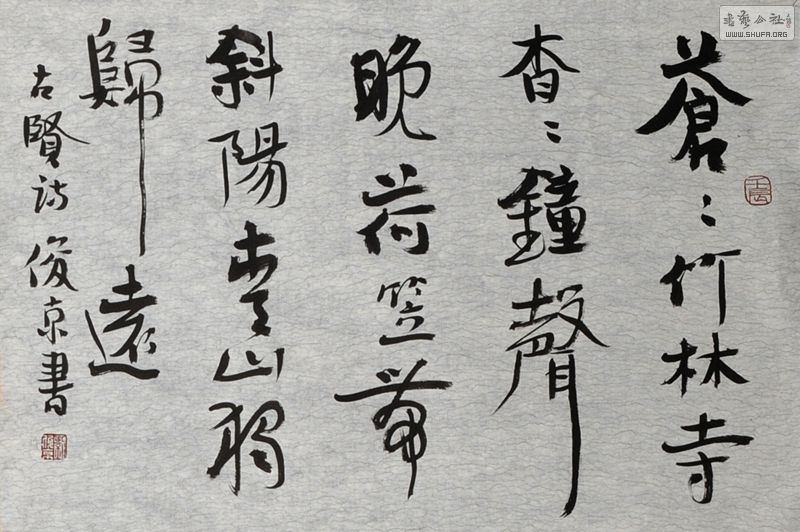 蒼〻竹林寺
杳〻鐘聲
晚荷笠帶
斜陽青山獨
歸遠
古賢詩 俊京書
書藝公社
WWW.SHUFA.ORG